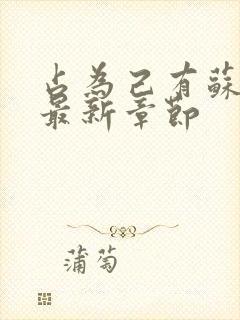 占為己有蘇
最新章節
蒲萄